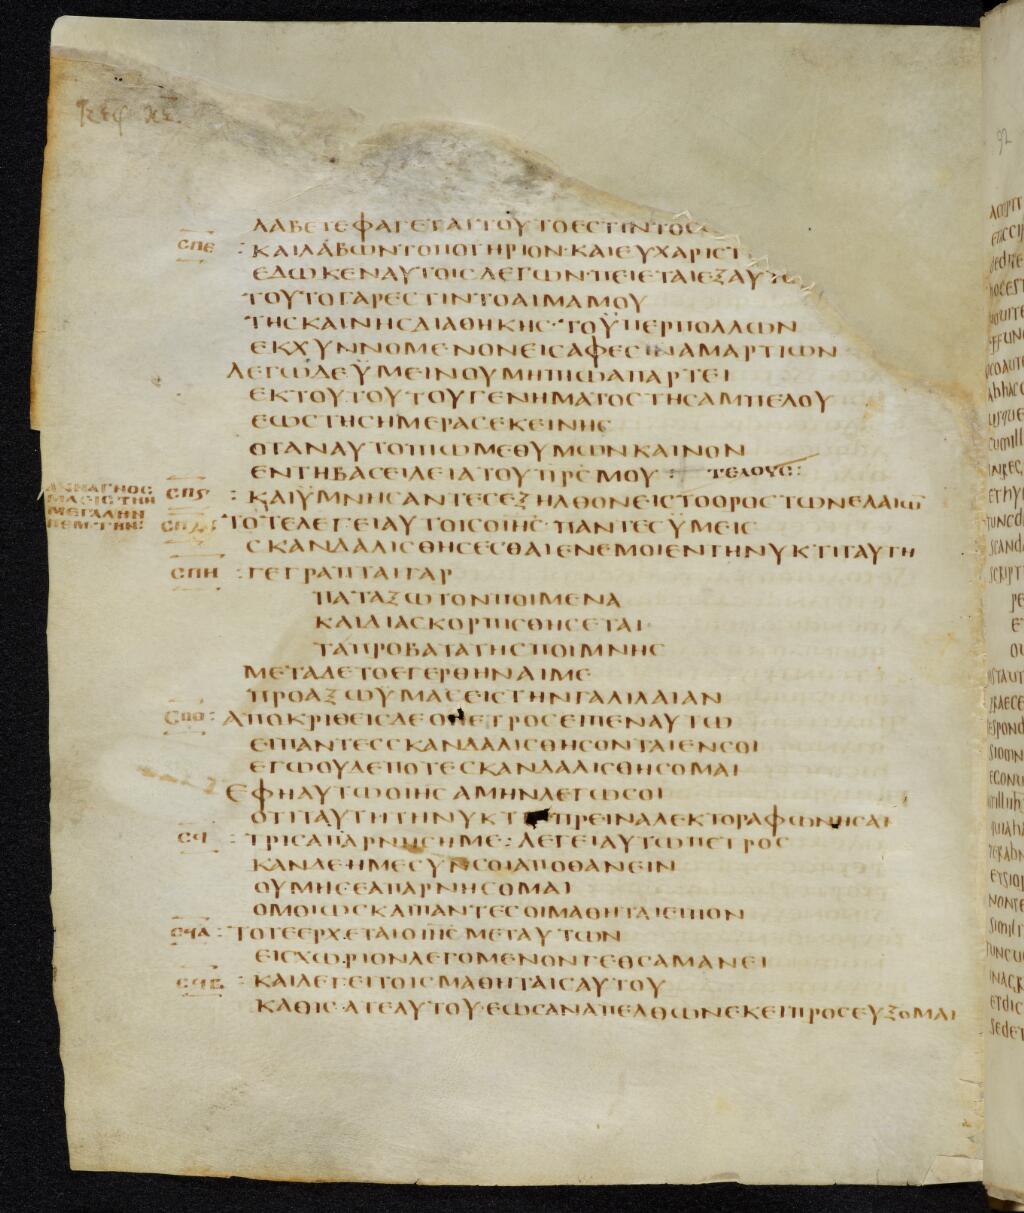 ΛΑΒΕΤΕΦΑΓΕΤΑΙΤΟΥΤΟΕΣΤΙΝΤΟΣ
ΣΠΕ : ΚΑΙΛΑΒΩΝΤΟΠΟΤΗΡΙΟΝ·ΚΑΙΕΥΧΑΡΙΣΤ
ΕΔΩΚΕΝΑΥΤΟΙΣΛΕΓΩΝ·ΠΕΙΕΤΑΙΕΞΑΥΤ
ΤΟΥΤΟΓΑΡΕΣΤΙΝΤΟΑΙΜΑΜΟΥ
ΤΗΣΚΑΙΝΗΣΔΙΑΘΗΚΗΣ·ΤΟΫΠΕΡΠΟΛΛΩΝ
ΕΚΧΥΝΝΟΜΕΝΟΝΕΙΣΑΦΕΣΙΝΑΜΑΡΤΙΩΝ
ΛΕΓΩΔΕΫΜΕΙΝΟΥΜΗΠΙΩΑΠΑΡΤΕΙ
ΕΚΤΟΥΤΟΥΤΟΥΓΕΝΗΜΑΤΟΣΤΗΣΑΜΠΕΛΟΥ
ΕΩΣΤΗΣΗΜΕΡΑΣΕΚΕΙΝΗΣ
ΟΤΑΝΑΥΤΟΠΙΩΜΕΘΥΜΩΝΚΑΙΝΟΝ
ΕΝΤΗΒΑΣΕΙΛΕΙΑΤΟΥΠΡΣΜΟΥ : ΤΕΛΟΥΣ:
ΑΝΝΑΓΝΟΣ
ΜΑΣΙΣΤΗΝ
ΜΕΓΑΛΗΝ
ΠΕΜΤΗΝ:
ΣΠϚ : ΚΑΙΫΜΝΗΣΑΝΤΕΣΕΞΗΛΘΟΝΕΙΣΤΟΟΡΟΣΤΩΝΕΛΑΙΩ
ΣΠΖ: ΤΟΤΕΛΕΓΕΙΑΥΤΟΙΣΟΙΗΣ·ΠΑΝΤΕΣΫΜΕΙΣ
ΣΚΑΝΔΑΛΙΣΘΗΣΕΣΘΑΙΕΝΕΜΟΙΕΝΤΗΝΥΚΤΙΤΑΥΤΗ
ΣΠΗ : ΓΕΓΡΑΠΤΑΙΓΑΡ
ΠΑΤΑΞΩΤΟΝΠΟΙΜΕΝΑ
ΚΑΙΔΙΑΣΚΟΡΠΙΣΘΗΣΕΤΑΙ
ΤΑΠΡΟΒΑΤΑΤΗΣΠΟΙΜΝΗΣ
ΜΕΤΑΔΕΤΟΕΓΕΡΘΗΝΑΙΜΕ
ΠΡΟΑΞΩΫΜΑΣΕΙΣΤΗΝΓΑΛΙΛΑΙΑΝ
ΣΠΘ: ΑΠΟΚΡΙΘΕΙΣΔΕΟΠΕΤΡΟΣΕΙΠΕΝΑΥΤΩ
ΕΙΠΑΝΤΕΣΣΚΑΝΔΑΛΙΣΘΗΣΟΝΤΑΙΕΝΣΟΙ
ΕΓΩΟΥΔΕΠΟΤΕΣΚΑΝΔΑΛΙΣΘΗΣΟΜΑΙ
ΕΦΗΑΥΤΩΟΙΗΣΑΜΗΝΛΕΓΩΣΟΙ
ΟΤΙΤΑΥΤΗΤΗΝΥΚΤΙΠΡΕΙΝΑΛΕΚΤΟΡΑΦΩΝΗΣΑΙ
ΣϞ : ΤΡΙΣΑΠΑΡΝΗΣΗΜΕ: ΛΕΓΕΙΑΥΤΩΠΕΤΡΟΣ
ΚΑΝΔΕΗΜΕΣΥΝΣΟΙΑΠΟΘΑΝΕΙΝ
ΟΥΜΗΣΕΑΠΑΡΝΗΣΟΜΑΙ
ΟΜΟΙΩΣΚΑΙΠΑΝΤΕΣΟΙΜΑΘΗΤΑΙΕΙΠΟΝ
ΣϞΑ : ΤΟΤΕΕΡΧΕΤΑΙΟΙΗΣΜΕΤΑΥΤΩΝ
ΕΙΣΧΩΡΙΟΝΛΕΓΟΜΕΝΟΝΓΕΘΣΑΜΑΝΕΙ
ΣϞΒ : ΚΑΙΛΕΓΕΙΤΟΙΣΜΑΘΗΤΑΙΣΑΥΤΟΥ
ΚΑΘΙΣΑΤΕΑΥΤΟΥ·ΕΩΣΑΝΑΠΕΛΘΩΝΕΚΕΙΠΡΟΣΕΥΞΟΜΑΙ
92